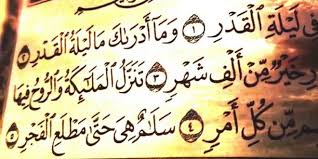 فِى لَيْلَةِ ٱلْقَدْرِ ١ وَمَآ أَدْرَىٰكَ مَا لَيْلَةُ ٱلْقَدْرِ ٢
خَيْرٌ مِّنْ أَلْفِ شَهْرٍ ٣ تَنَزَّلُ ٱلْمَلَٰٓئِكَةُ وَٱلرُّوحُ فِيهَا
مِّن كُلِّ أَمْرٍ ٤ سَلَٰمٌ هِىَ حَتَّىٰ مَطْلَعِ ٱلْفَجْرِ ٥